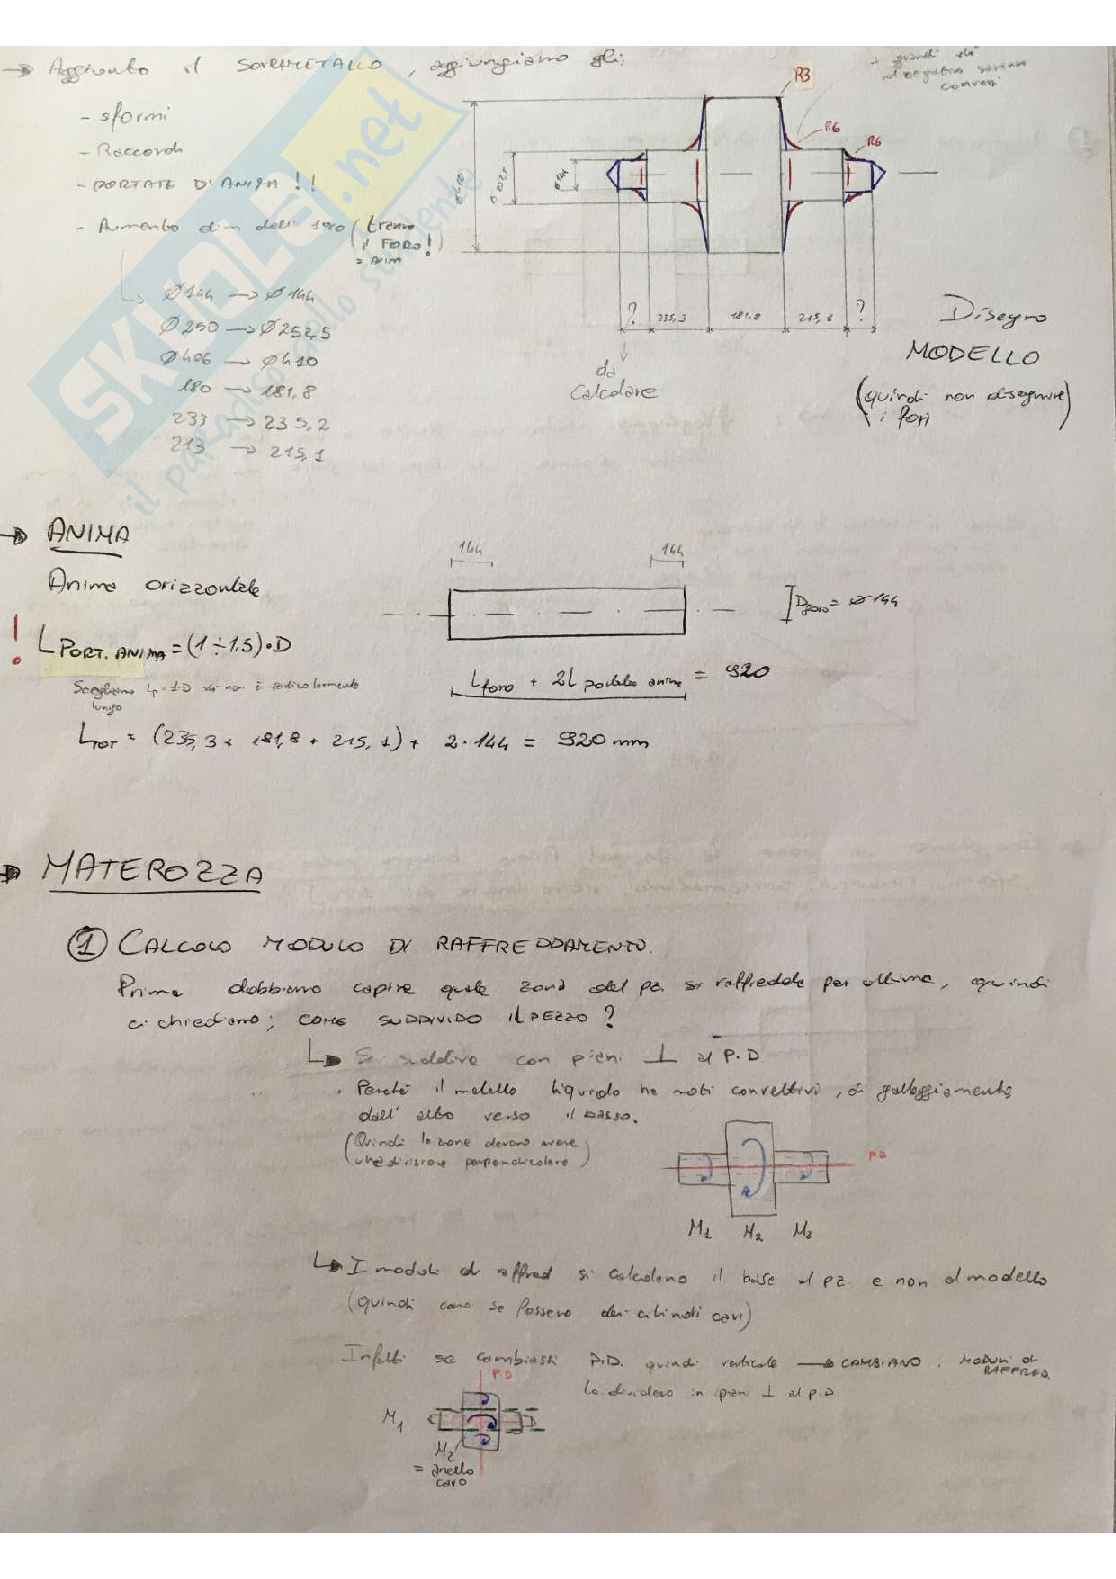 → Aggiunto il SOVRAMETALLO, aggiungiamo gli:
- sformi
- Raccordi
- PORTATE D'ANIMA !!
- Aumento dim dell' 1% (tranne il FORO! = anim
Ø144 → Ø144
Ø250 → Ø252,5
Ø406 → Ø410
180 → 181,8
233 → 235,2
213 → 215,1
R3
R6
R6
Ø410
? 235,3 181,8 215,1 ?
da calcolare
Disegno
MODELLO
(quindi non disegnare i fori)
SKUOLA.net
→ ANIMA
Anima orizzontale
! L PORT. ANIMA = (1÷1.5)·D
Scegliamo
lungo
144 144
D foro = Ø144
L foro + 2L portate anima = 920
L TOT = (235,3 + 181,8 + 215,1) + 2·144 = 920 mm
→ MATEROZZA
① CALCOLO MODULO DI RAFFREDDAMENTO.
Prima dobbiamo capire quale zona del pz. si raffredda per ultima, quindi
ci chiediamo; COME SUDDIVIDO IL PEZZO?
↳ Si suddivide con piani ⊥ al P.D
. Perché il metallo liquido ha moti convettivi, di galleggiamento
dall' alto verso il basso.
(Quindi le zone devono avere
una divisione perpendicolare)
M1 M2 M3
↳ I moduli di raffred si calcolano in base al pz e non al modello
(quindi come se fossero dei cilindri cavi)
Infatti se cambiassi P.D. quindi verticale → CAMBIANO i MODULI di RAFFRED.
Lo divideva in piani ⊥ al p.D
P.D
M1
M2
= anello
cavo